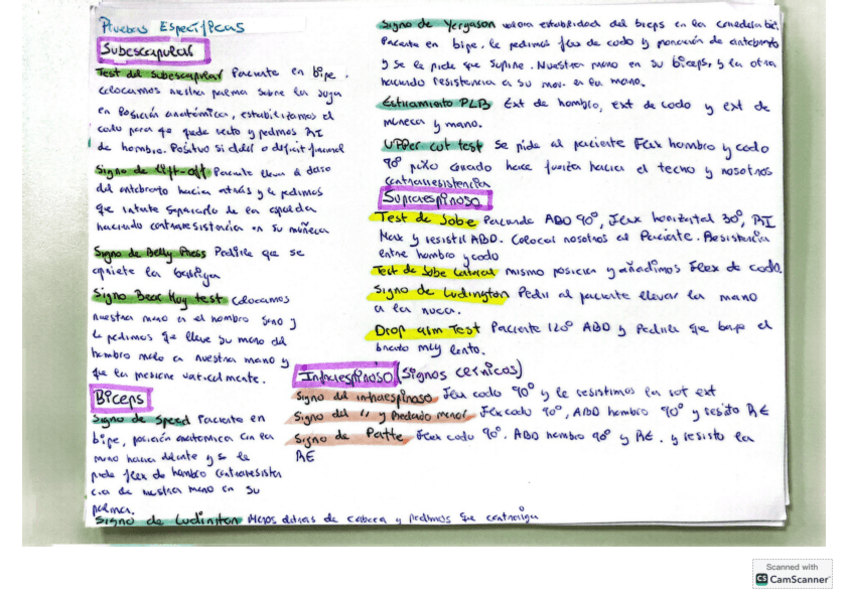 Pruebas Específicas
Subescapular
Test del subescapular Paciente en bipe.
colocamos nuestra palma sobre la suya
en posición anatómica, estabilizamos el
codo para qe quede recto y pedimos RI
de hombro. Positivo si dolor o déficit funcional
Signo de lift-off Paciente lleva el dorso
del antebrazo hacia atrás y le pedimos
que intente separarlo de la espalda
haciendo contraresistencia en su muñeca
Signo de Belly Press Pedirle que se
apriete la barriga
Signo Bear Hug test Colocamos
nuestra mano en el hombro sano y
le pedimos que lleve su mano del
hombro malo a nuestra mano y
que la presione verticalmente.
Biceps
Signo de Speed Paciente en
bipe, posición anatomica con la
mano hacia delante y se le
pide flex de hombro contraresisten
cia de nuestra mano en su
palma.
Signo de Ludington Manos detras de cabeza y pedimos que contraiga
Signo de Yergason valora estabilidad del biceps en la corredera bi.
Paciente en bipe. le pedimos flex de codo y pronación de antebrazo
y se le pide que supine. Nuestra mano en su biceps, y la otra
haciendo resistencia a su mov. en la mano.
Estiramiento PLB Ext de hombro, ext de codo y ext de
muñeca y mano.
Upper cut test Se pide al paciente Flex hombro y codo
90º puño cerrado hace fuerza hacia el techo y nosotros
contraresistencia
Supraespinoso
Test de Jobe Paciente ABD 90º, flex horizontal 30º, RI
Max y resistir ABD. Colocar nosotros al Paciente. Resistencia
entre hombro y codo
Test de Jobe lateral mismo posicion y añadimos Flex de codo
Signo de Ludington Pedir al paciente llevar la mano
a la nuca.
Drop arm Test Paciente 120º ABD y Pedirle que baje el
brazo muy lento.
Infraespinoso (Signos cernicos)
Signo del infraespinoso Flex codo 90º y le resistimos la rot ext
Signo del " y Redondo menor Flex codo 90º, ABD hombro 90º y resisto RE
Signo de Patte Flex codo 90º. ABD hombro 90º y RE. y resisto la
RE
Scanned with
CS CamScanner